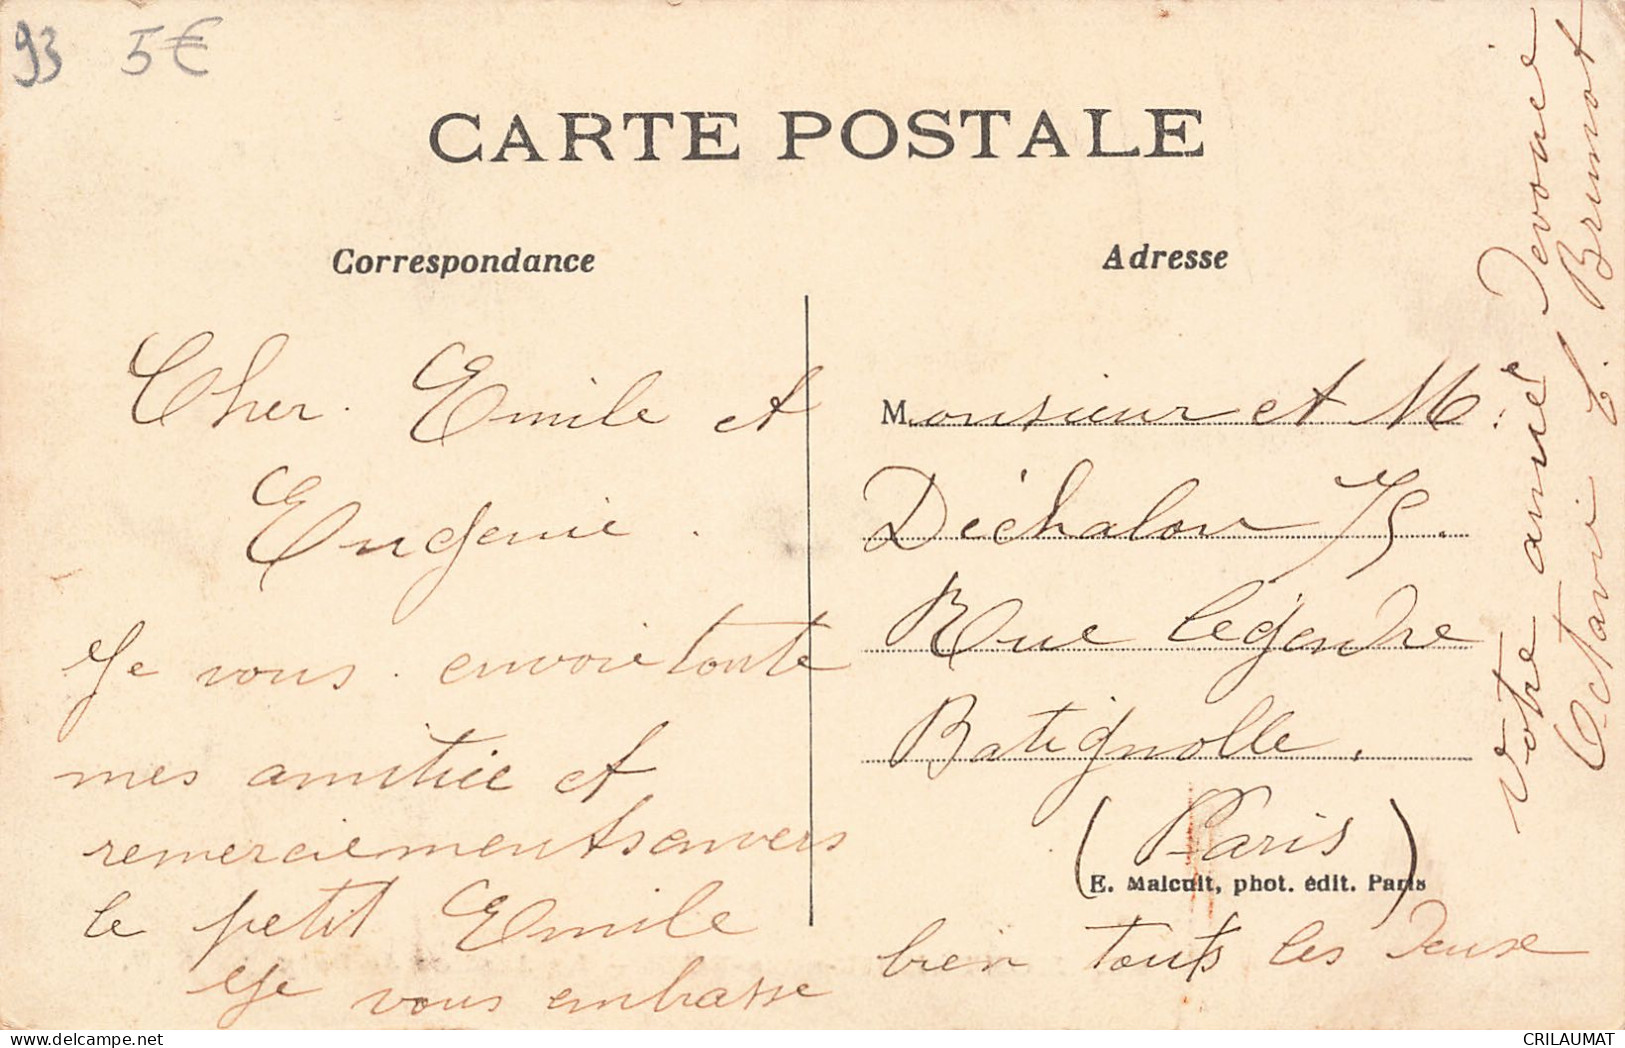 93 5€
CARTE POSTALE
Correspondance
Adresse
Cher Emile et
Eugenie.
Je vous envoie toute
mes amitiée et
remerciements envers
le petit Emile
Je vous embasse
bien touts les deux
Monsieur et M.
Déchalou 75.
Rue legendre
Batignolle.
(Paris)
E. Malcuit, phot. édit. Paris
Votre amie devouée
Octavie E. Brunot
delcampe.net
CRILAUMAT